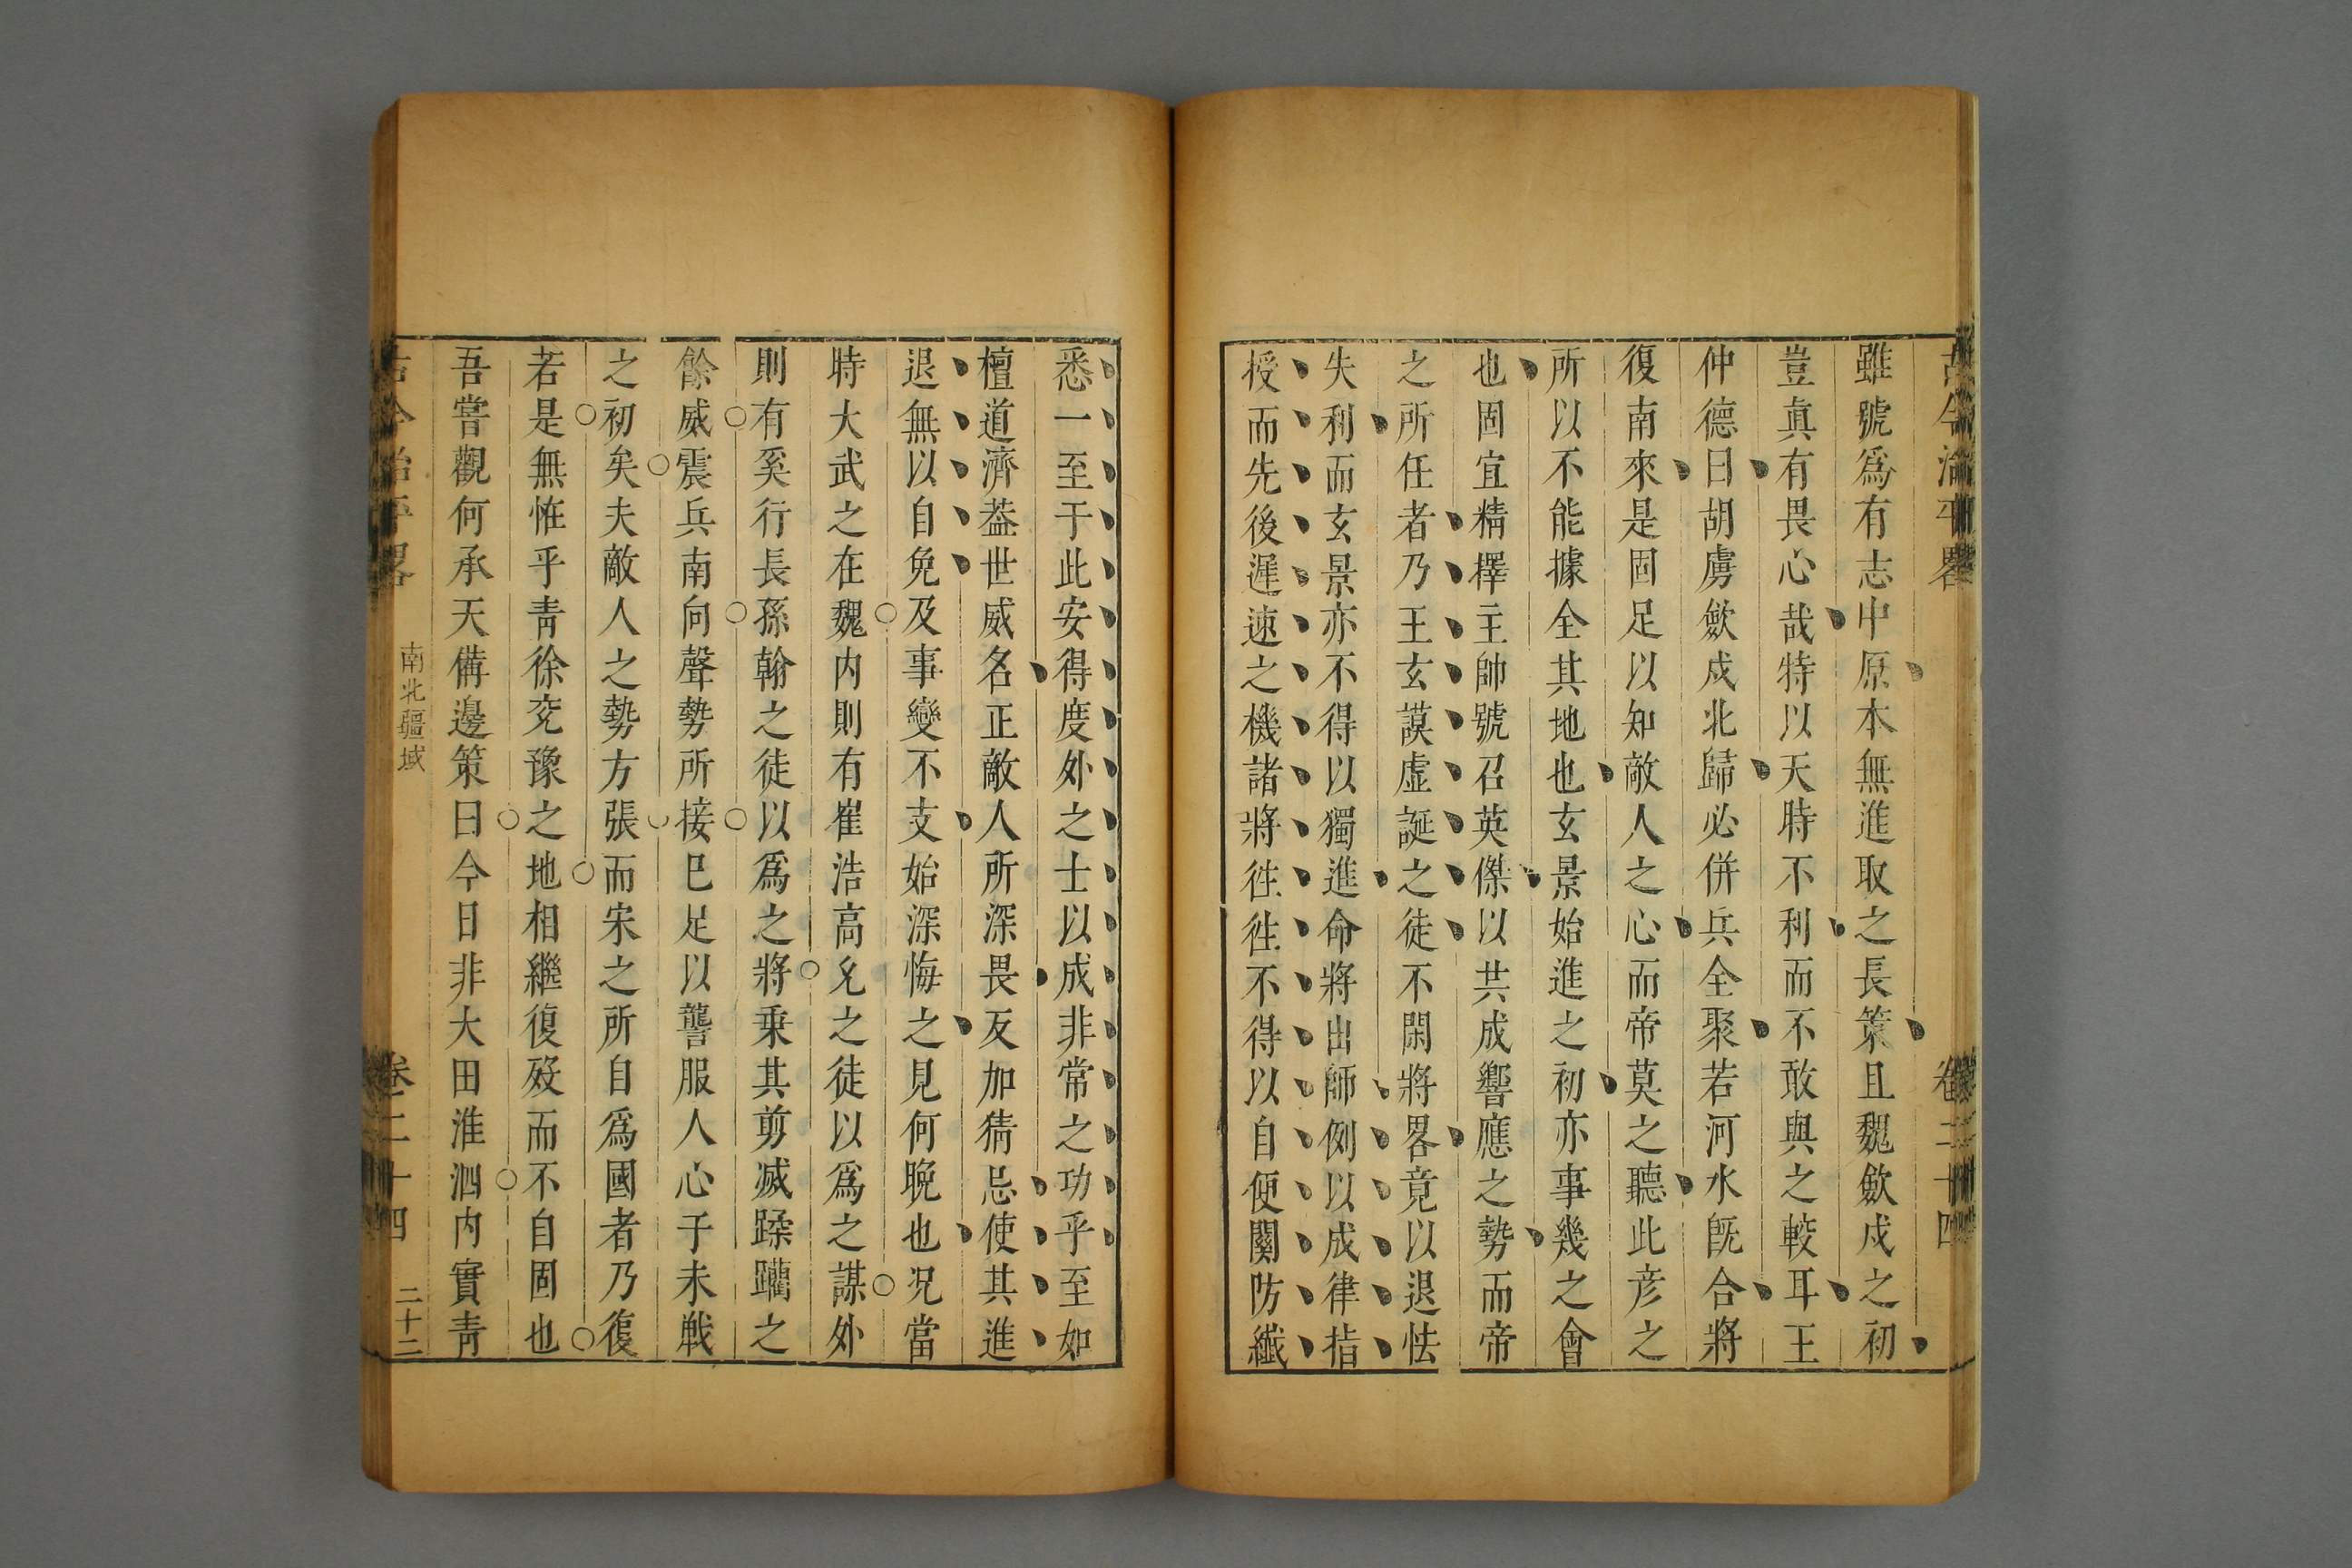 古今治平畧 卷二十四
雖號爲有志中原本無進取之長策且魏歛戍之初
豈真有畏心哉特以天時不利而不敢與之較耳王
仲德曰胡虜歛戍北歸必併兵全聚若河水旣合將
復南來是固足以知敵人之心而帝莫之聽此彦之
所以不能據全其地也玄景始進之初亦事幾之會
也固宜精擇主帥號召英傑以共成響應之勢而帝
之所任者乃王玄謨虛誕之徒不閑將畧竟以退怯
失利而玄景亦不得以獨進命將出師例以成律指
授而先後遲速之機諸將徃徃不得以自便關防纖
悉一至于此安得度外之士以成非常之功乎至如
檀道濟葢世威名正敵人所深畏反加猜忌使其進
退無以自免及事變不支始深悔之見何晚也况當
時大武之在魏内則有崔浩高允之徒以爲之謀外
則有奚行長孫翰之徒以爲之將乗其剪滅蹂躪之
餘威震兵南向聲勢所接巳足以讋服人心于未戰
之初矣夫敵人之勢方張而宋之所自爲國者乃復
若是無恠乎青徐兗豫之地相繼復殁而不自固也
吾甞觀何承天備邊策曰今日非大田淮泗内實青
古今治平畧 南北疆域 卷二十四 二十三